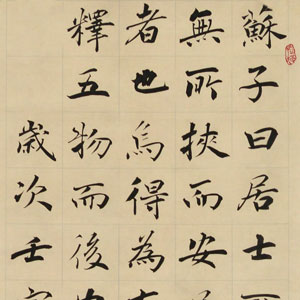 蘇子曰居士
無所挾而安
者也烏得為
釋五物而後
歲次壬